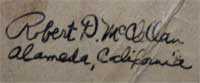 Robert D. McClellan
Alameda, California